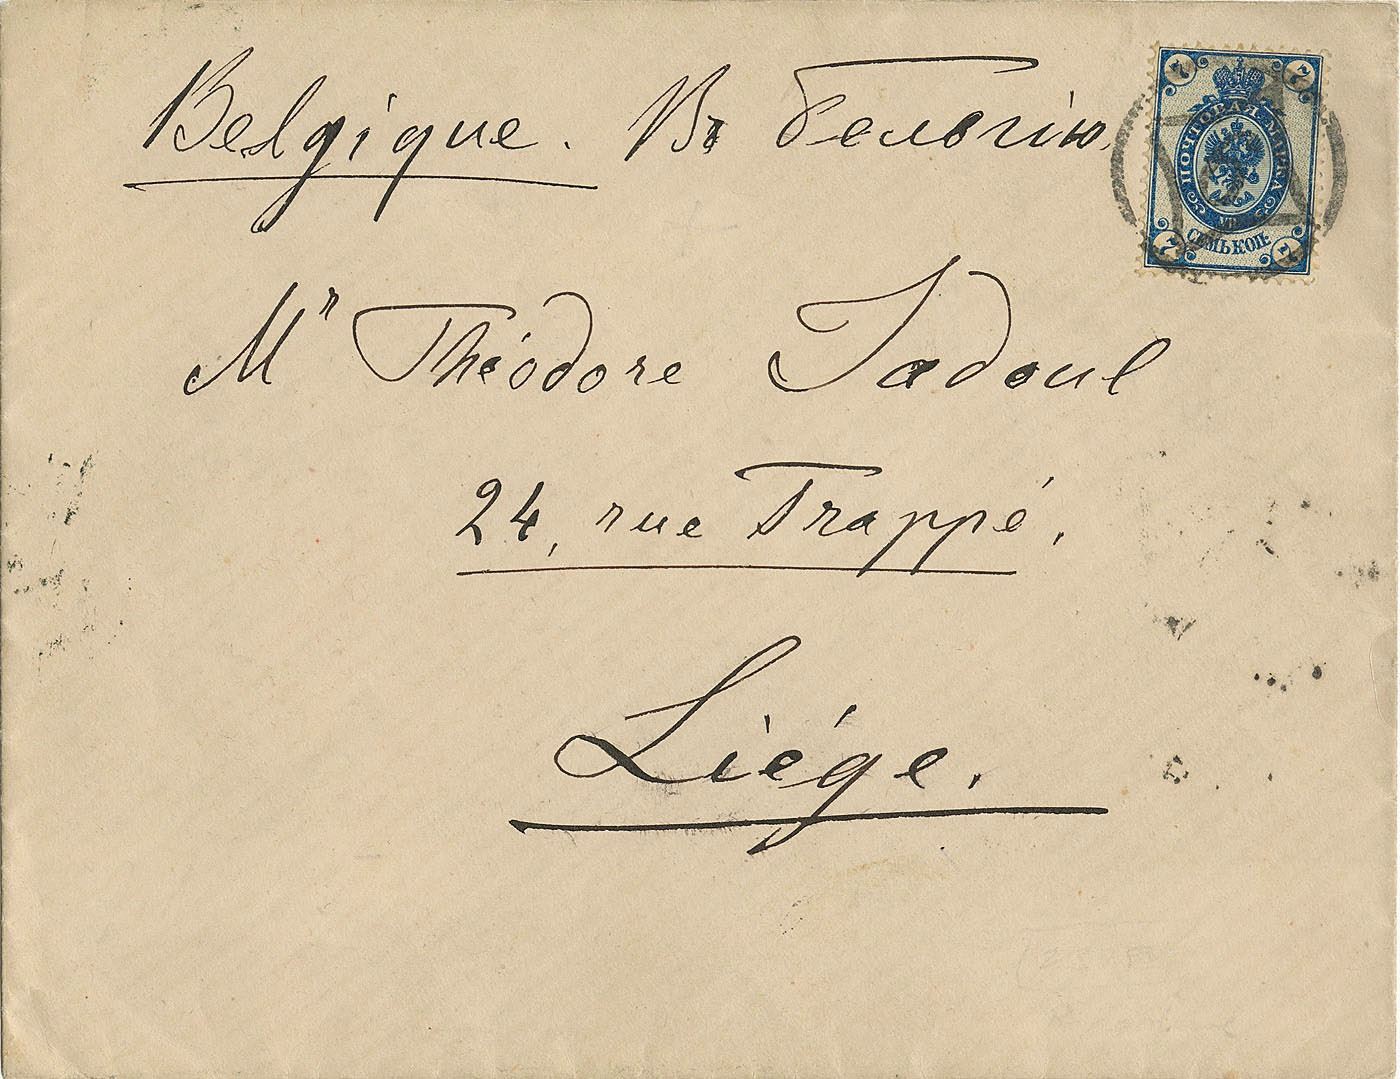 Belgique. Въ Бельгію.
Mr Théodore Jadoul
24, rue Trappé,
Liége.
ПОЧТОВАЯ МАРКА
СЕМЬ КОП:
7 7
7 7